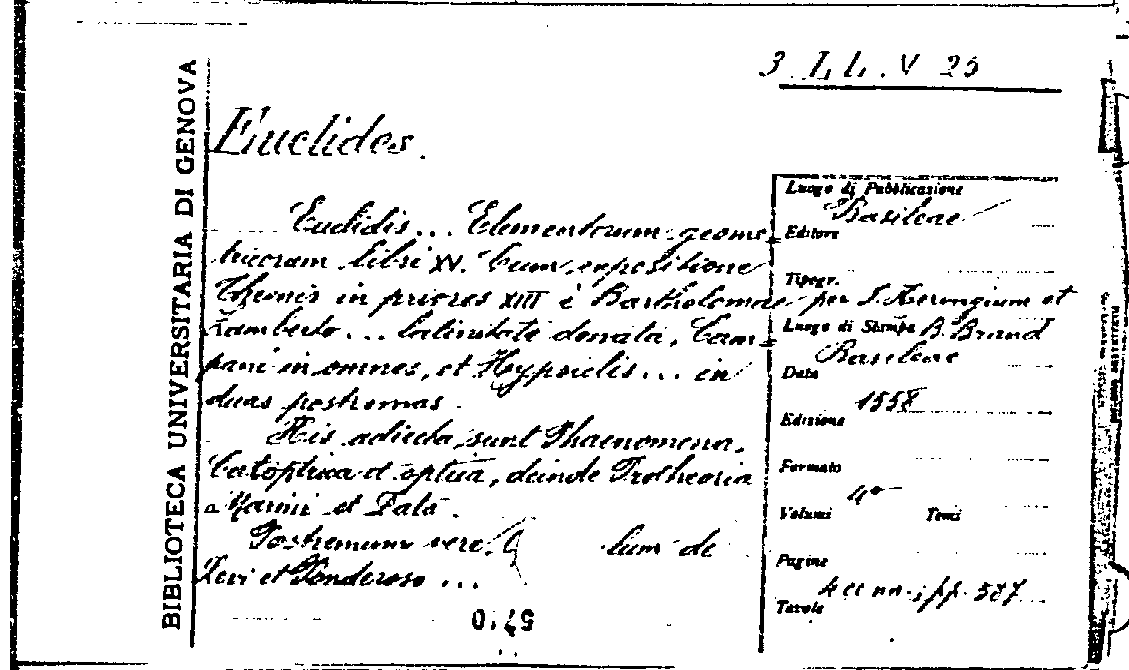 BIBLIOTECA UNIVERSITARIA DI GENOVA
3. L L. V 25
Euclides.
Euclidis... Elementorum geome=
tricoram libri XV. Cum expositione
Theonis in priores XIII è Bartholomæo
Zamberto... latinitate donata, Cam=
pani in omnes, et Hypsiclis... in
duas postremas.
His adiecta sunt Phaenomena,
Catoptrica et optica, deinde Protheoria
a Marini et Data.
Postremum vero, lum de
Levi et Ponderoso...
Luogo di Pubblicazione
Basileae
Editore
Tipogr.
per I. Hervagium et
Luogo di Stampa B. Brand
Basileae
Data
1558
Edizione
Formato
4°
Volumi Tomi
Pagine
4 cc nn., pp. 587
Tavole